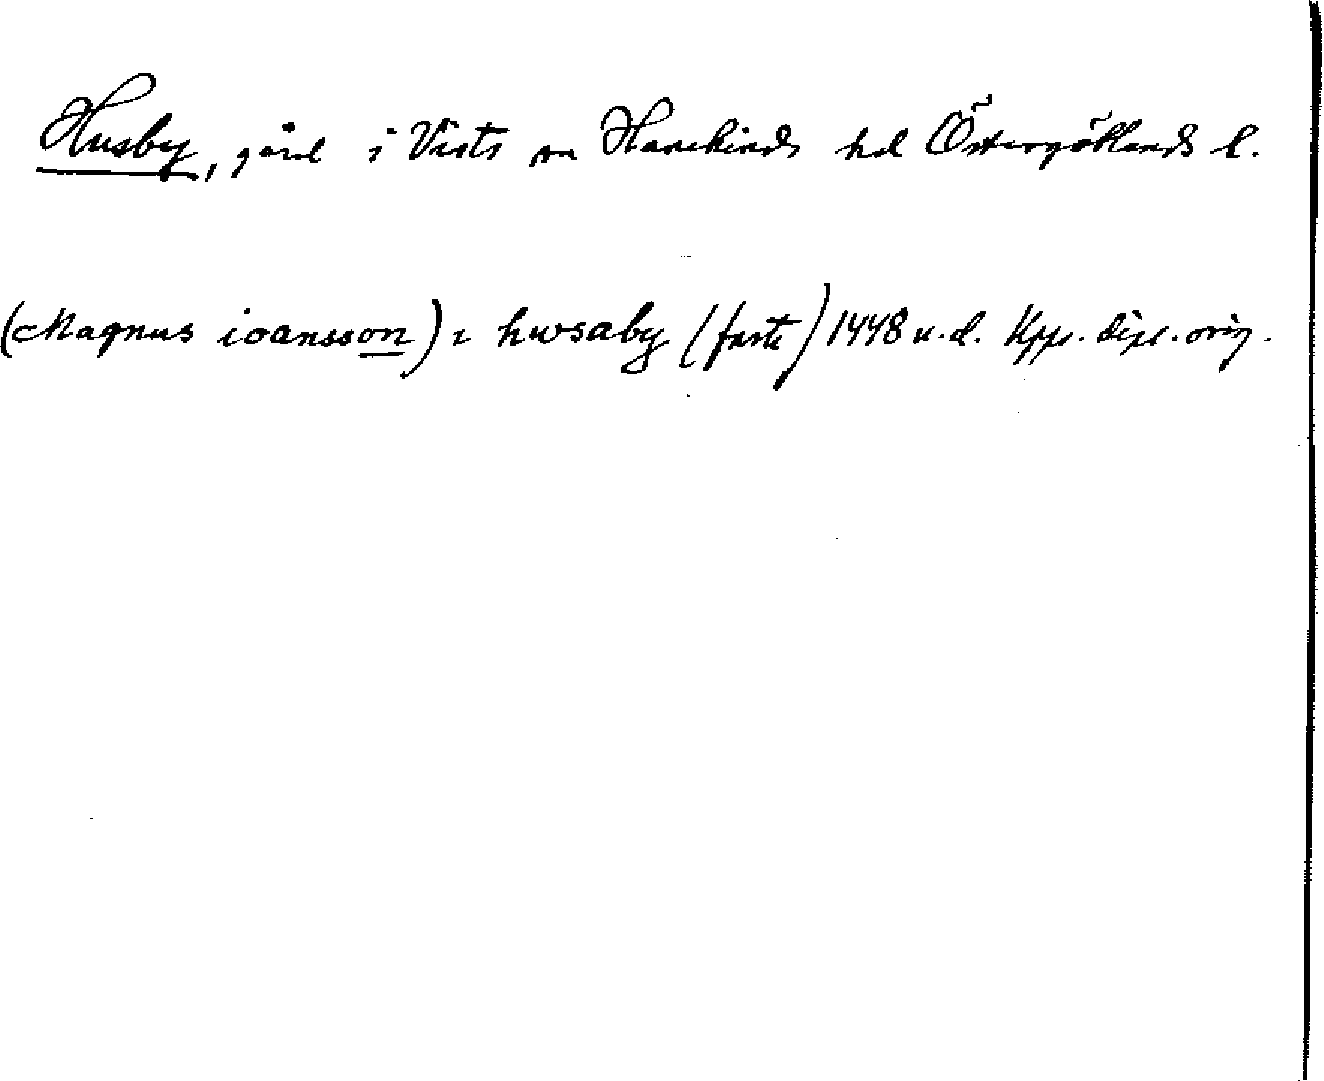 Husby, gård i Vists sn Hanekinds hd Östergötlands l.
(Magnus ioansson) i hwsaby (faste) 1448 u.d. Kpp. dipl. orig.